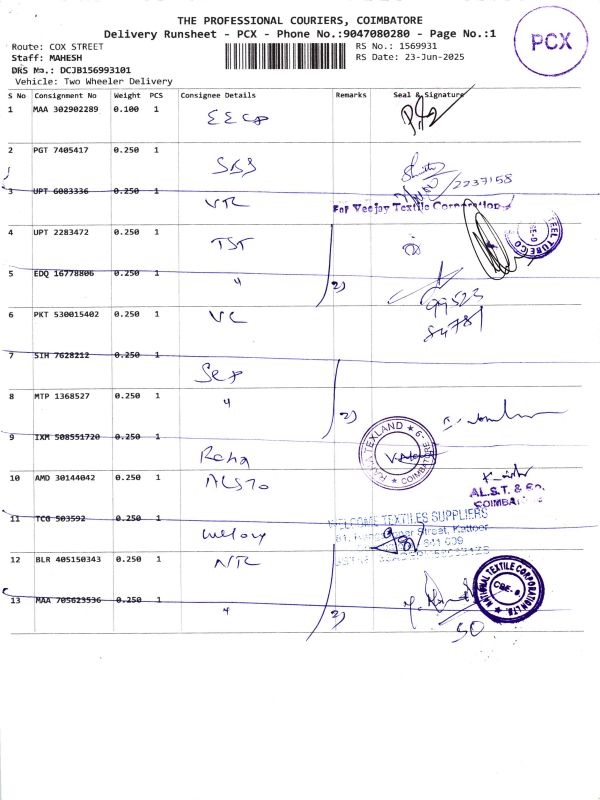 THE PROFESSIONAL COURIERS, COIMBATORE
Delivery Runsheet - PCX - Phone No.:9047080280 - Page No.:1
PCX
Route: COX STREET
RS No.: 1569931
Staff: MAHESH
RS Date: 23-Jun-2025
DRS No.: DCJB156993101
Vehicle: Two Wheeler Delivery
S No Consignment No Weight PCS Consignee Details Remarks Seal & Signature
1 MAA 302902289 0.100 1
2 PGT 7405417 0.250 1 SBS
2237158
3 UPT 6083336 0.250 1 VTC
For Veejay Textile Corporation
4 UPT 2283472 0.250 1 TST
STEEL TUBE CO
5 EDQ 16778806 0.250 1 " 2)
99523
84781
6 PKT 530015402 0.250 1 VC
7 SIH 7628212 0.250 1
8 MTP 1368527 0.250 1 " 2)
9 IXM 508551720 0.250 1 Raha
TEXLAND ★ COIMBATORE-9 ★
10 AMD 30144042 0.250 1
AL.S.T. & Co.
COIMBA
11 TCG 503592 0.250 1
WELCOME TEXTILES SUPPLIERS
Street, Kattoor
641 009
12 BLR 405150343 0.250 1 NTC
NATIONAL TEXTILE CORPORATION LTD. ★ CBE-9
13 MAA 705623536 0.250 1 " 2)
50